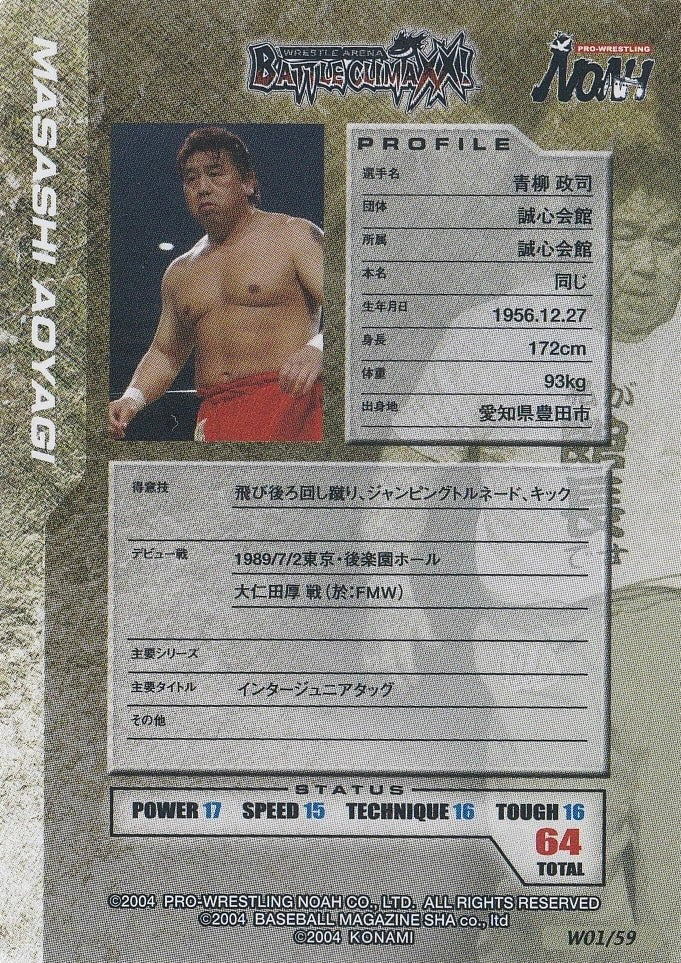 MASASHI AOYAGI
WRESTLE ARENA
BATTLE CLIMAXX!
PRO-WRESTLING
NOAH
PROFILE
選手名 青柳 政司
団体 誠心会館
所属 誠心会館
本名 同じ
生年月日 1956.12.27
身長 172cm
体重 93kg
出身地 愛知県豊田市
得意技 飛び後ろ回し蹴り、ジャンピングトルネード、キック
デビュー戦 1989/7/2東京・後楽園ホール
大仁田厚 戦(於:FMW)
主要シリーズ
主要タイトル インタージュニアタッグ
その他
STATUS
POWER 17 SPEED 15 TECHNIQUE 16 TOUGH 16
64
TOTAL
©2004 PRO-WRESTLING NOAH CO., LTD. ALL RIGHTS RESERVED
©2004 BASEBALL MAGAZINE SHA co., ltd
©2004 KONAMI
W01/59